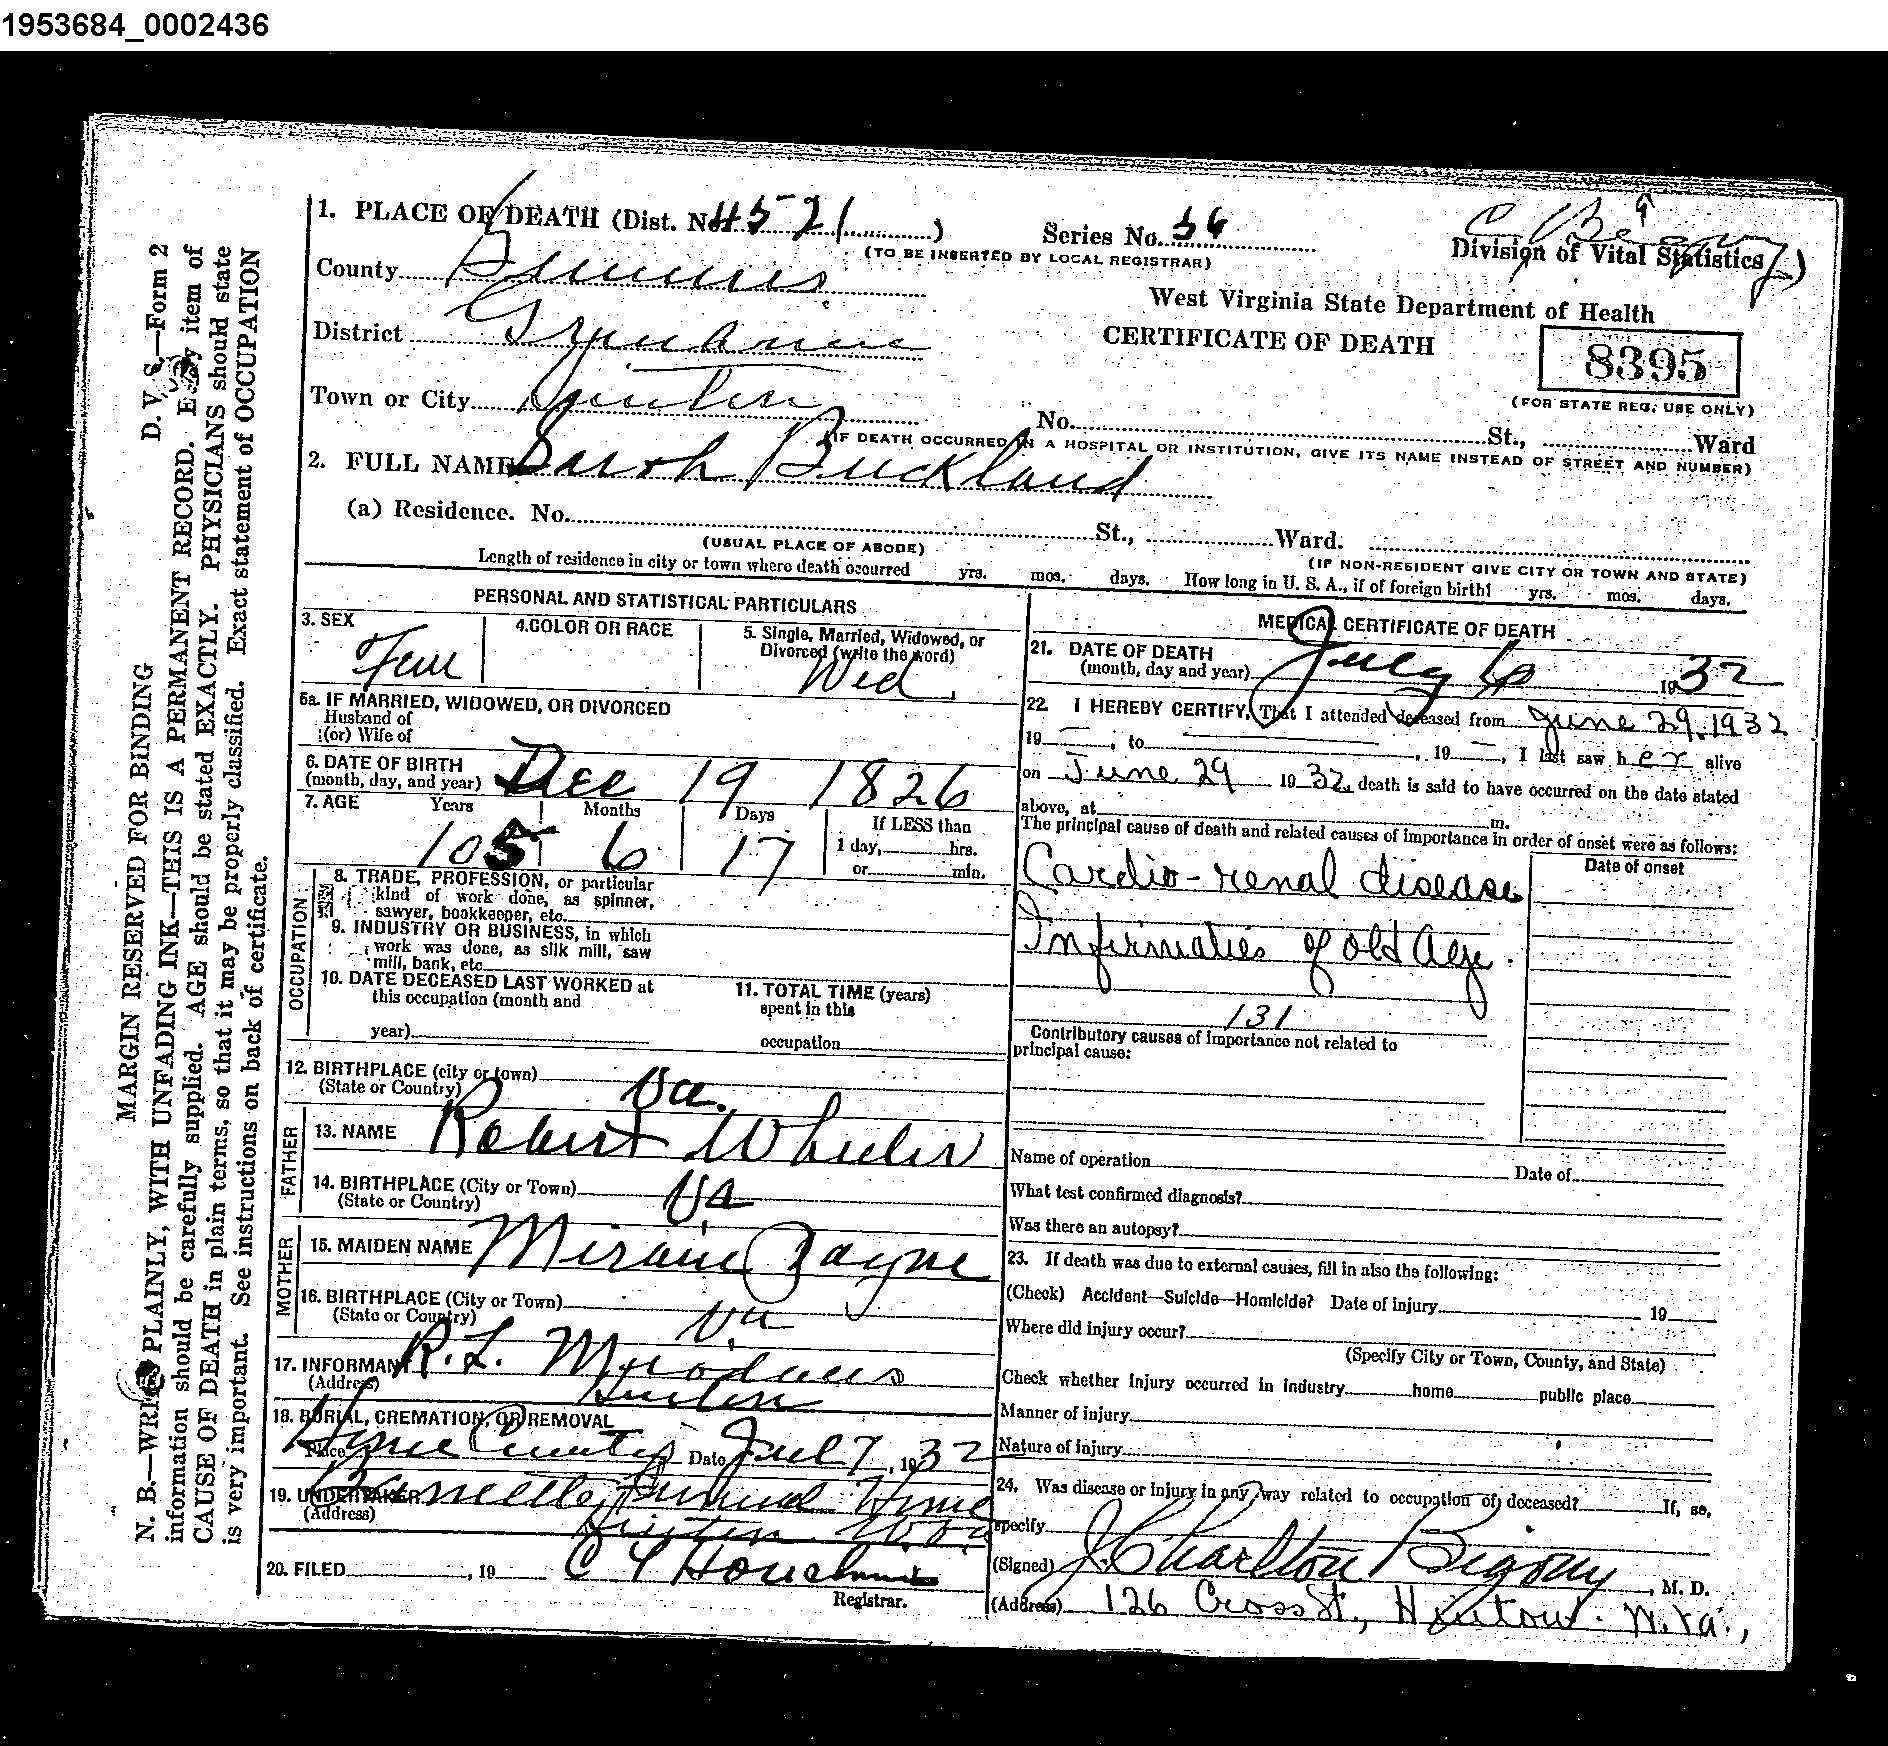 1953684_0002436
1. PLACE OF DEATH (Dist. No. 4521)
Series No. 36
(TO BE INSERTED BY LOCAL REGISTRAR)
Division of Vital Statistics
County Summers
West Virginia State Department of Health
CERTIFICATE OF DEATH
District
8395
(FOR STATE REG. USE ONLY)
Town or City Hinton
No. St., Ward
(IF DEATH OCCURRED IN A HOSPITAL OR INSTITUTION, GIVE ITS NAME INSTEAD OF STREET AND NUMBER)
2. FULL NAME Sarah Buckland
(a) Residence. No. St., Ward.
(USUAL PLACE OF ABODE)
(IF NON-RESIDENT GIVE CITY OR TOWN AND STATE)
Length of residence in city or town where death occurred yrs. mos. days. How long in U. S. A., if of foreign birth? yrs. mos. days.
PERSONAL AND STATISTICAL PARTICULARS
3. SEX
Fem
4. COLOR OR RACE
5. Single, Married, Widowed, or
Divorced (write the word)
Wid.
5a. IF MARRIED, WIDOWED, OR DIVORCED
Husband of
(or) Wife of
6. DATE OF BIRTH
(month, day, and year) Dec 19 1826
7. AGE Years Months Days If LESS than
105 6 17 1 day, hrs.
or min.
OCCUPATION
8. TRADE, PROFESSION, or particular
kind of work done, as spinner,
sawyer, bookkeeper, etc.
9. INDUSTRY OR BUSINESS, in which
work was done, as silk mill, saw
mill, bank, etc.
10. DATE DECEASED LAST WORKED at
this occupation (month and
year)
11. TOTAL TIME (years)
spent in this
occupation
12. BIRTHPLACE (city or town)
(State or Country) Va.
FATHER
13. NAME Robert Wheeler
14. BIRTHPLACE (City or Town)
(State or Country) Va
MOTHER
15. MAIDEN NAME
16. BIRTHPLACE (City or Town)
(State or Country) Va
17. INFORMANT R. L. Meadows
(Address) Hinton
18. BURIAL, CREMATION, OR REMOVAL
Place Date Jul 7, 1932
19. UNDERTAKER Funeral Home
(Address) Hinton W.Va
20. FILED , 19
Registrar.
MEDICAL CERTIFICATE OF DEATH
21. DATE OF DEATH
(month, day and year) July 6 1932
22. I HEREBY CERTIFY, That I attended deceased from June 29, 1932
19 , to , 19 , I last saw her alive
on June 29 1932, death is said to have occurred on the date stated
above, at m.
The principal cause of death and related causes of importance in order of onset were as follows:
Date of onset
Cardio-renal disease
Infirmaties of old Age.
131
Contributory causes of importance not related to
principal cause:
Name of operation Date of
What test confirmed diagnosis?
Was there an autopsy?
23. If death was due to external causes, fill in also the following:
(Check) Accident—Suicide—Homicide? Date of injury 19
Where did injury occur?
(Specify City or Town, County, and State)
Check whether injury occurred in industry home public place
Manner of injury
Nature of injury
24. Was disease or injury in any way related to occupation of deceased? If, so,
specify
(Signed) J. Charlton Bigony, M. D.
(Address) 126 Cross St., Hinton. W.Va.,
MARGIN RESERVED FOR BINDING D. V. S.—Form 2
N. B.—WRITE PLAINLY, WITH UNFADING INK—THIS IS A PERMANENT RECORD. Every item of
information should be carefully supplied. AGE should be stated EXACTLY. PHYSICIANS should state
CAUSE OF DEATH in plain terms, so that it may be properly classified. Exact statement of OCCUPATION
is very important. See instructions on back of certificate.